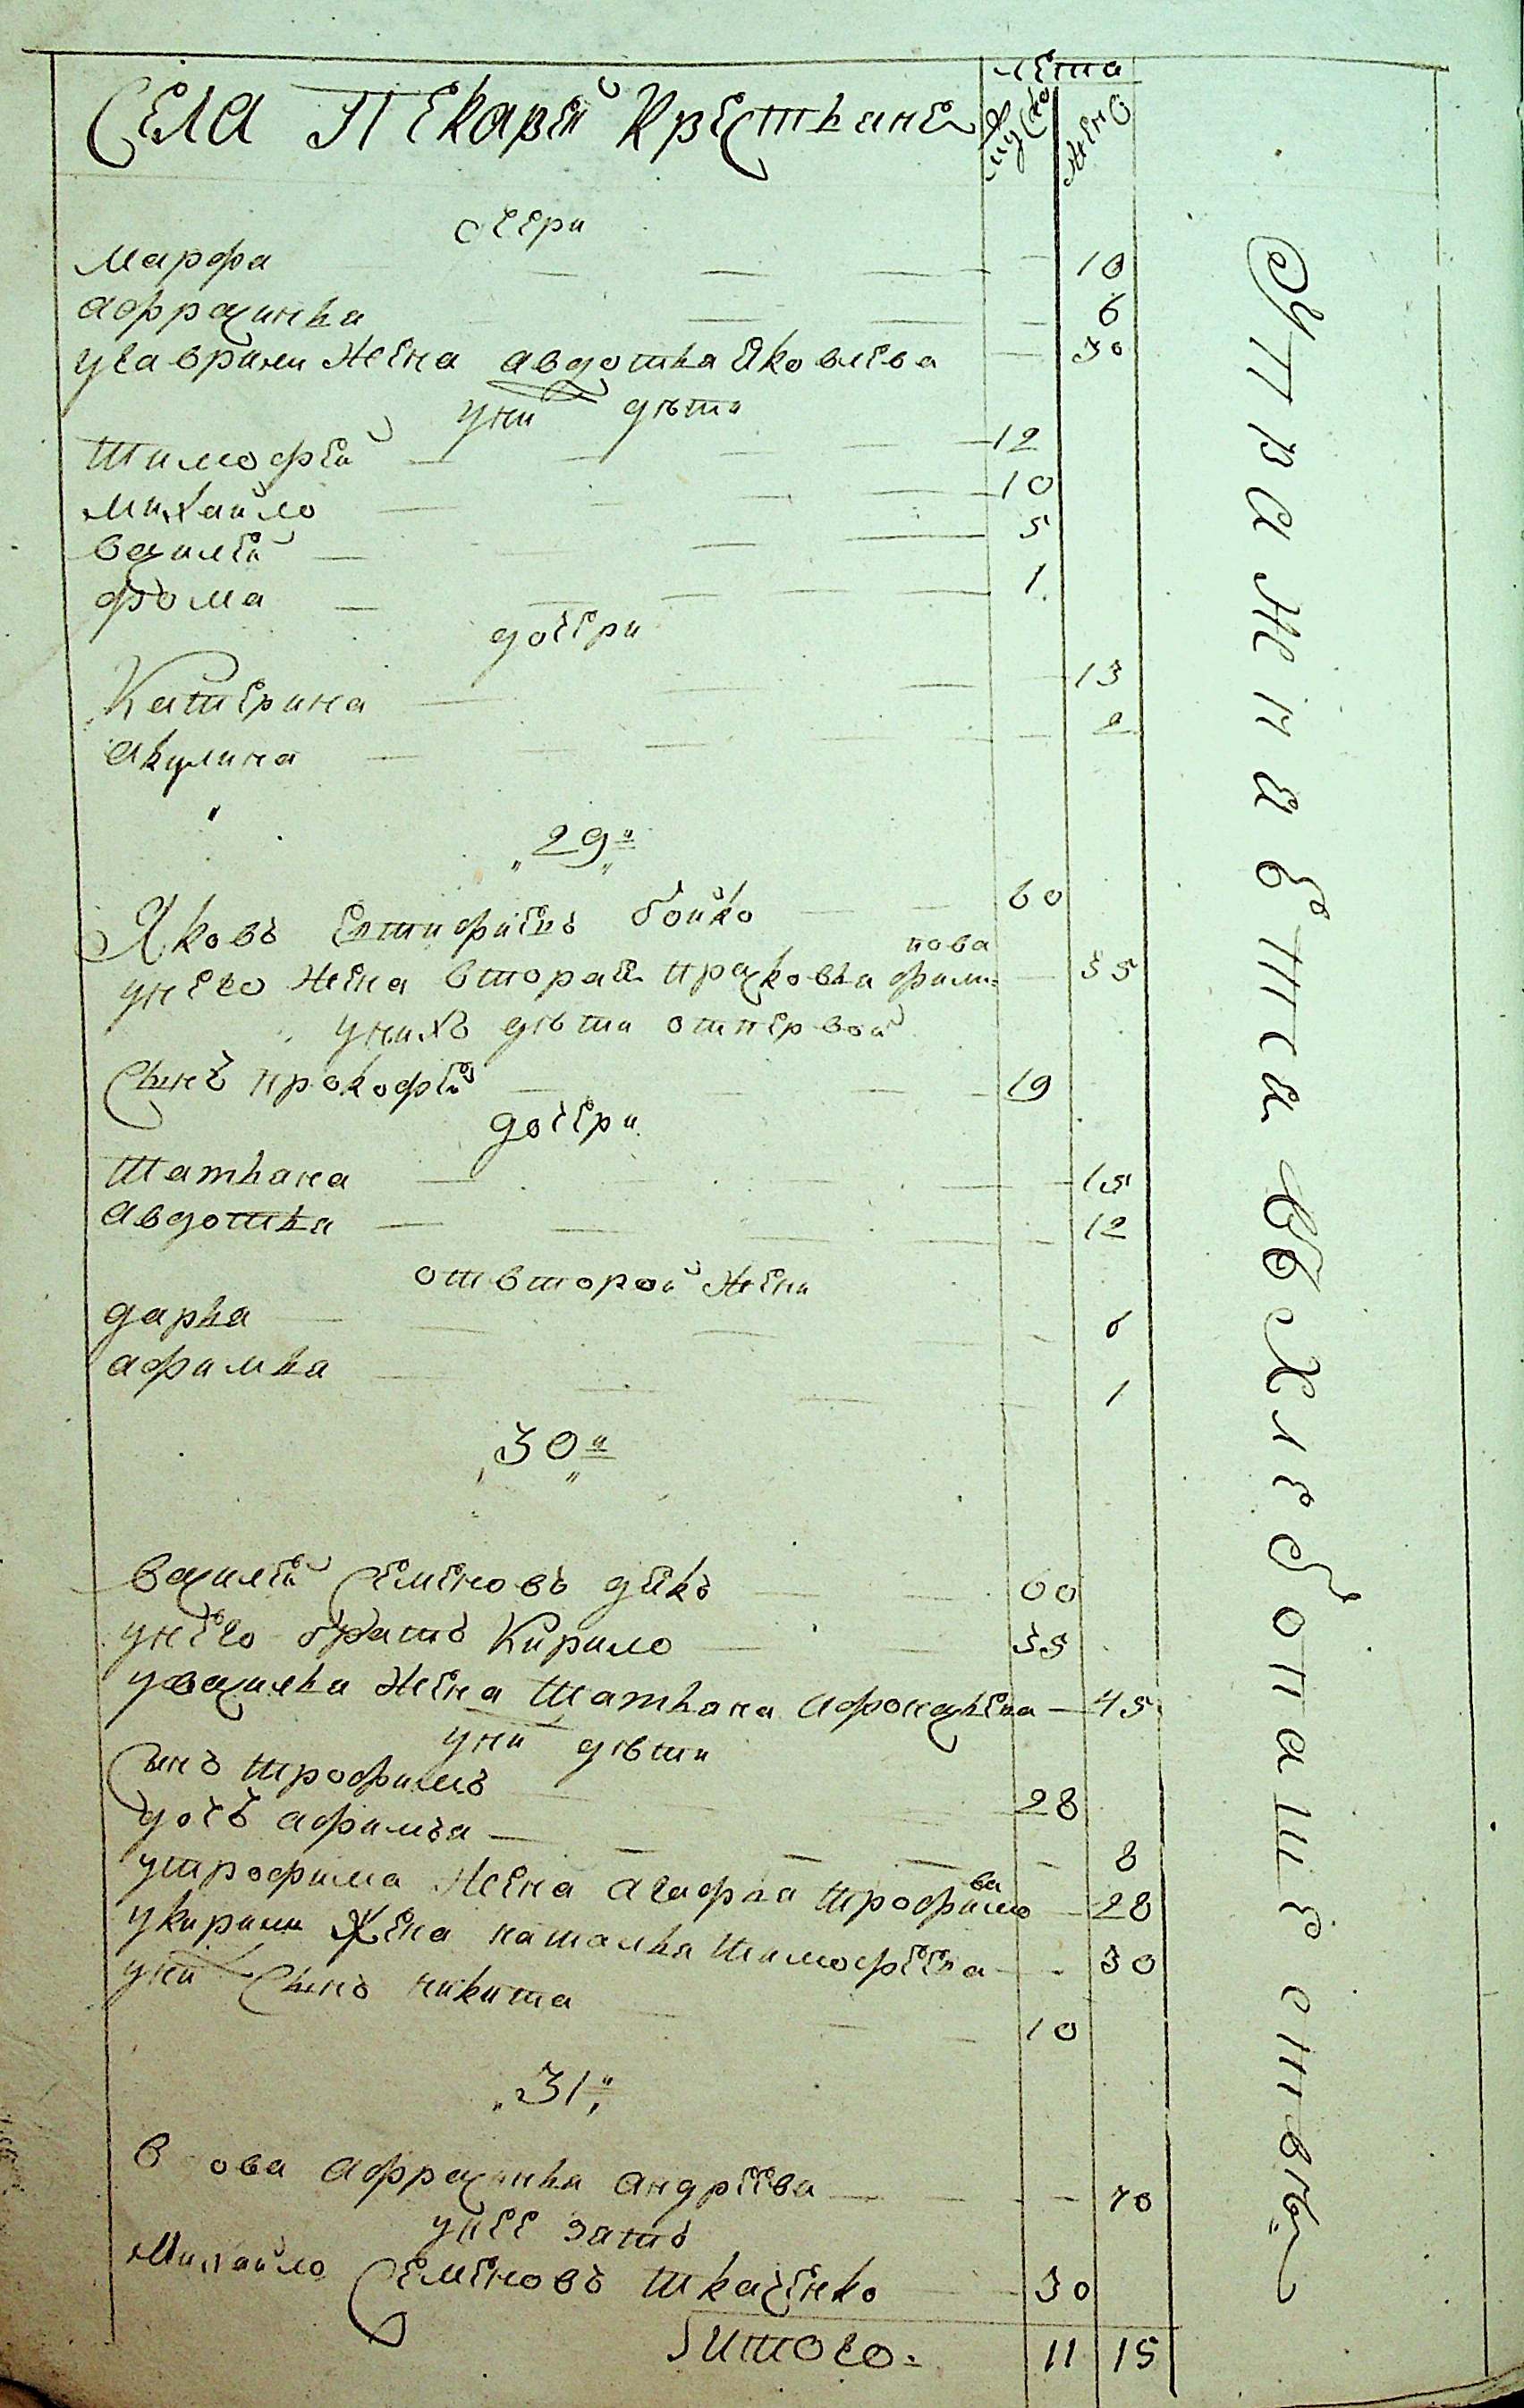 лета
Села Пекарей Крестьяне
муско
женс
дочери
марфа 10
афрасинья 6
угаврили жена авдотья Яковлева 30
уни дѣти
тимофей 12
михайло 10
василей 5
фома 1
дочери
Катерина 13
акулина 2
29й
Яковъ Евтифиевъ бойко 60
унего жена вторая прасковья фили=пова 35
унихъ дѣти отпервой
Сынъ прокофей 19
дочери
татьяна 15
авдотья 12
отвторой жени
дарья 6
афимья 1
30й
василей Семеновъ дякъ 60
унего братъ Кирило 35
увасилья жена татьяна афонасьева 45
уни дѣти
Сынъ трофимъ 28
дочъ афимья 8
утрофима жена агафья трофимова 28
укирили жена наталья тимофеева 30
уни Сынъ никита 10
31й
в ова афрасинья андреева 70
унее зять
Михайло Семеновъ ткаченко 30
итого 11 15
Упражняется вхлебопашестве